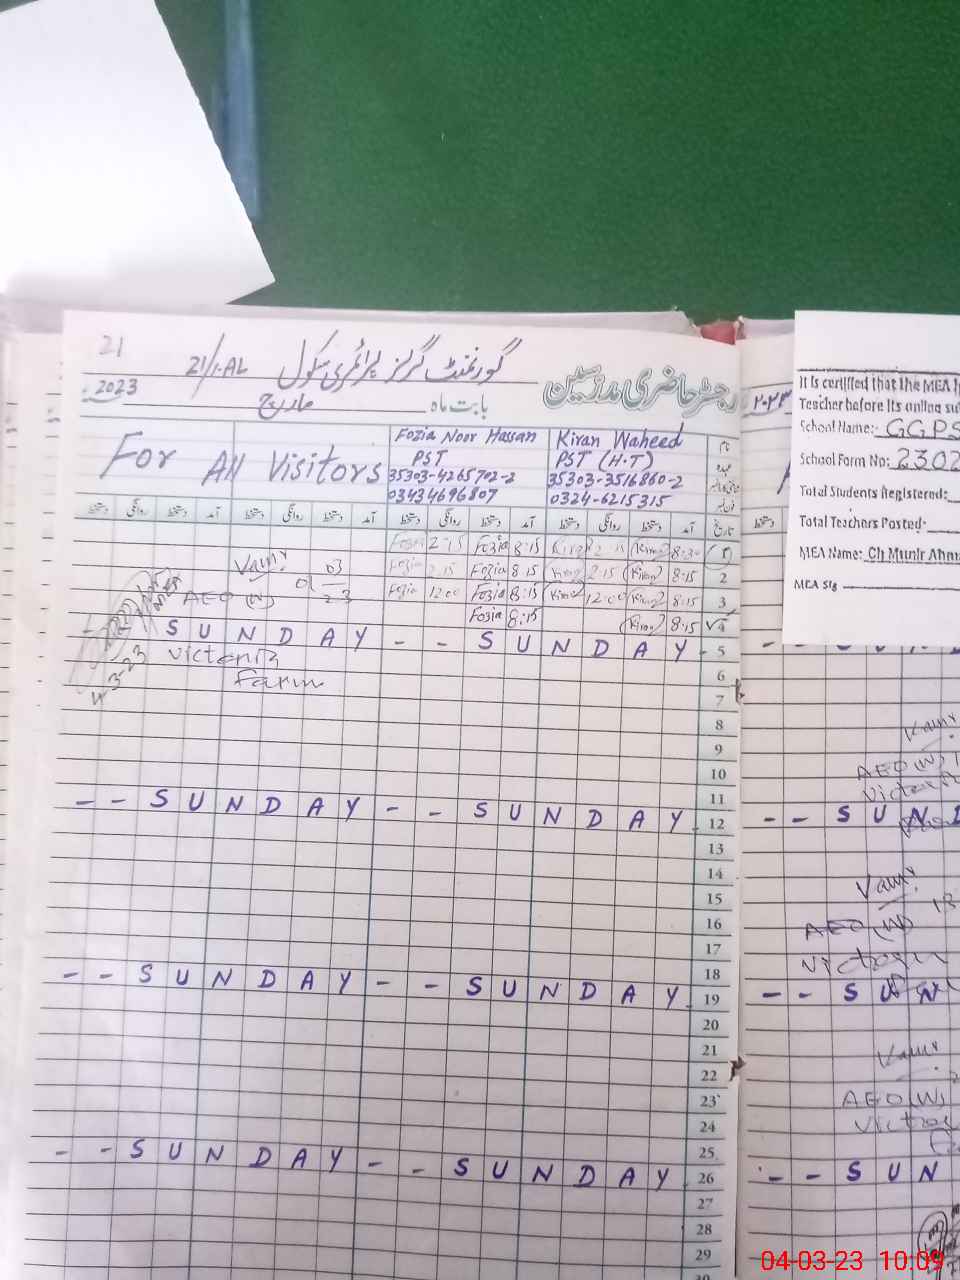 21
21/1.AL گورنمنٹ گرلز پرائمری سکول
رجسٹر حاضری مدرسین
2023 مارچ بابت ماہ
For All Visitors
Fozia Noor Hassan
PST
35303-4265702-2
03434696807
Kiran Waheed
PST (H.T)
35303-3516860-2
0324-6215315
دستخط روانگی دستخط آمد دستخط روانگی دستخط آمد دستخط روانگی دستخط آمد دستخط روانگی دستخط آمد تاریخ
Fozia 2:15 Fozia 8:15 Kiran 2:15 Kiran 8:30 1
Fozia 2:15 Fozia 8:15 Kiran 2:15 Kiran 8:15 2
AEO (W) 01 03 23
Fozia 12:00 Fozia 8:15 Kiran 12:00 Kiran 8:15 3
Fozia 8:15 Kiran 8:15 4
- - SUNDAY - - SUNDAY - 5
Victoria
Farm
4-3-23
6
7
8
9
10
11
- - SUNDAY - - SUNDAY - 12
13
14
15
16
17
18
- - SUNDAY - - SUNDAY - 19
20
21
22
23
24
25
- - SUNDAY - - SUNDAY - 26
27
28
29
30
۲۰۲۳
It is certified that the MEA
Teacher before its online
School Name:- GGPS
School Form No: 2302
Total Students Registered:
Total Teachers Posted:
MEA Name: Ch Munir Ahm
MEA Sig
AEO (W)
- - SUND
AEO (W)
- - SUN
AEO (W)
- - SUN
04-03-23 10:09